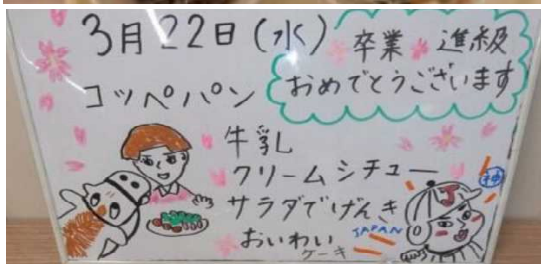 3月22日(水)
卒業 進級
おめでとうございます
コッペパン
牛乳
クリームシチュー
サラダでげんき
おいわい
ケーキ
JAPAN
J